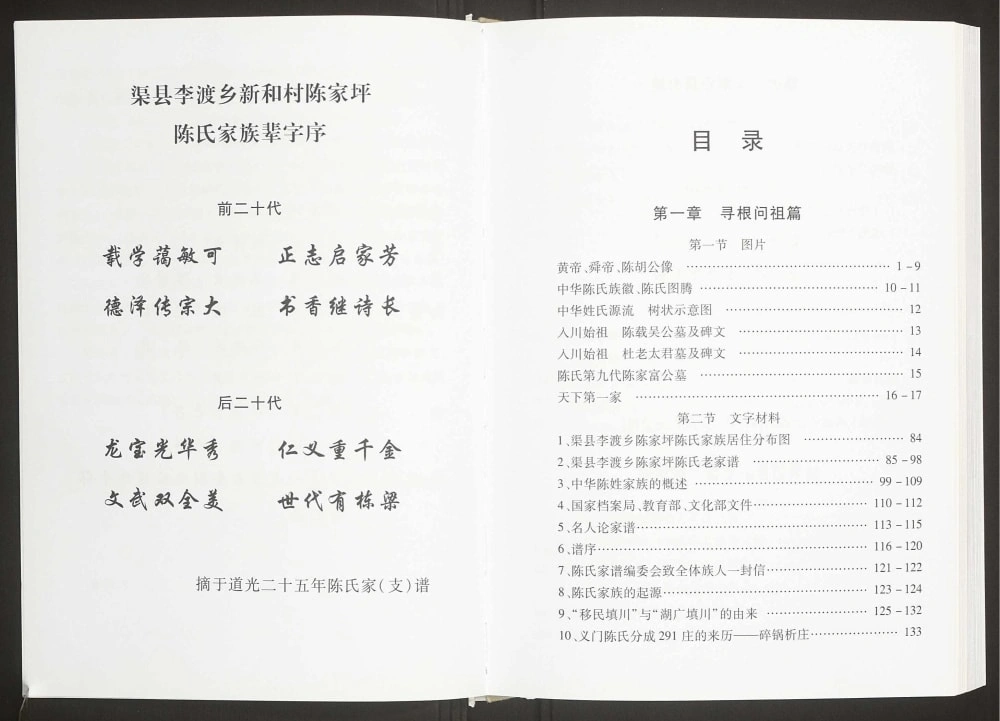 渠县李渡乡新和村陈家坪
陈氏家族辈字序
前二十代
载学蔼敏可 正志启家芳
德泽传宗大 书香继诗长
后二十代
龙宝光华秀 仁义重千金
文武双全美 世代有栋梁
摘于道光二十五年陈氏家(支)谱
目 录
第一章 寻根问祖篇
第一节 图片
黄帝、舜帝、陈胡公像 …………………………………… 1-9
中华陈氏族徽、陈氏图腾 ……………………………… 10-11
中华姓氏源流 树状示意图 …………………………… 12
入川始祖 陈载吴公墓及碑文 ………………………… 13
入川始祖 杜老太君墓及碑文 ………………………… 14
陈氏第九代陈家富公墓 ………………………………… 15
天下第一家 …………………………………………… 16-17
第二节 文字材料
1、渠县李渡乡陈家坪陈氏家族居住分布图 ……………… 84
2、渠县李渡乡陈家坪陈氏老家谱 ……………………… 85-98
3、中华陈姓家族的概述 ………………………………… 99-109
4、国家档案局、教育部、文化部文件…………………… 110-112
5、名人论家谱…………………………………………… 113-115
6、谱序…………………………………………………… 116-120
7、陈氏家谱编委会致全体族人一封信………………… 121-122
8、陈氏家族的起源……………………………………… 123-124
9、“移民填川”与“湖广填川”的由来 ………………… 125-132
10、义门陈氏分成291庄的来历——碎锅析庄……………… 133